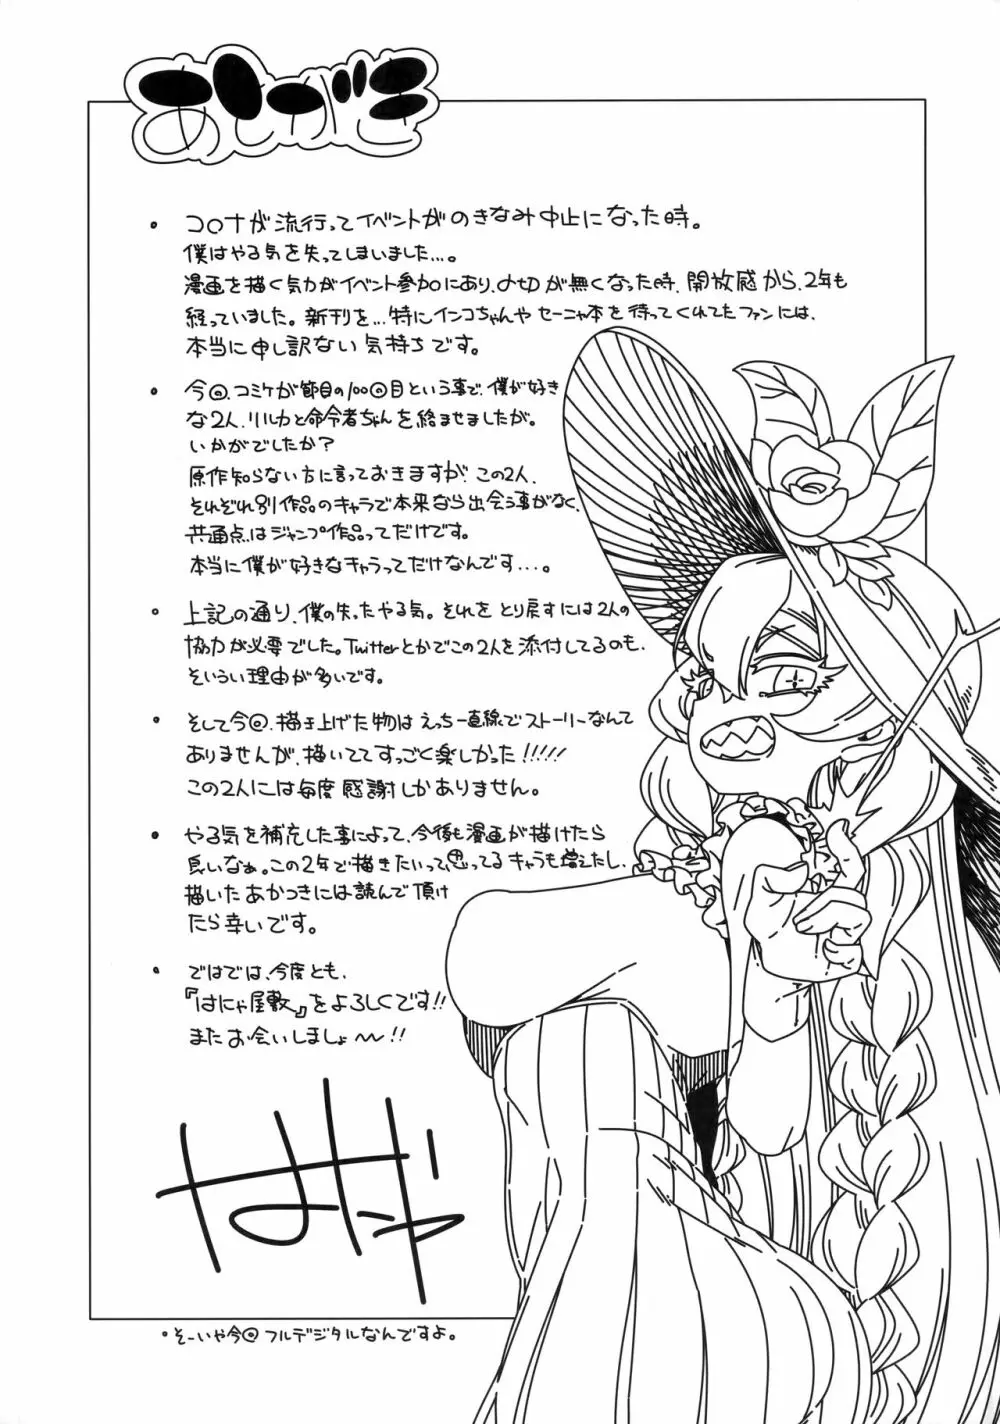 あとがき
・コロナが流行ってイベントがのきなみ中止になった時。
僕はやる気を失ってしまいました…。
漫画を描く気力がイベント参加にあり、〆切が無くなった時、開放感から、2年も
経っていました。新刊を…特にインコちゃんやセーニャ本を待ってくれてたファンには、
本当に申し訳ない気持ちです。
・今回、コミケが節目の100回目という事で、僕が好き
な2人、リルカと命令者ちゃんを絡ませましたが。
いかがでしたか?
原作知らない方に言っておきますが、この2人、
それぞれ別作品のキャラで本来なら出会う事がなく、
共通点はジャンプ作品ってだけです。
本当に僕が好きなキャラってだけなんです…。
・上記の通り、僕の失ったやる気。それをとり戻すには2人の
協力が必要でした。Twitterとかでこの2人を添付してるのも、
そいうい理由が多いです。
・そして今回、描き上げた物はえっち一直線でストーリーなんて
ありませんが、描いててすっごく楽しかった!!!!!
この2人には毎度感謝しかありません。
・やる気を補充した事によって、今後も漫画が描けたら
良いなぁ。この2年で描きたいって思ってるキャラも増えたし、
描いたあかつきには読んで頂け
たら幸いです。
・ではでは、今度とも、
『はにゃ屋敷』をよろしくです!!
またお会いしましょ〜!!
はにゃ
・そーいや今回フルデジタルなんですよ。